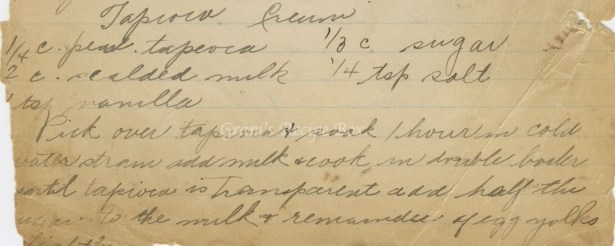 Tapioca Cream
1/4 c. pearl tapioca 1/3 c sugar
2 c. scalded milk 1/4 tsp salt
1 tsp vanilla
Pick over tapioca & soak 1 hour in cold
water strain add milk & cook in double boiler
until tapioca is transparent add half the
sugar to the milk & remainder of egg yolks